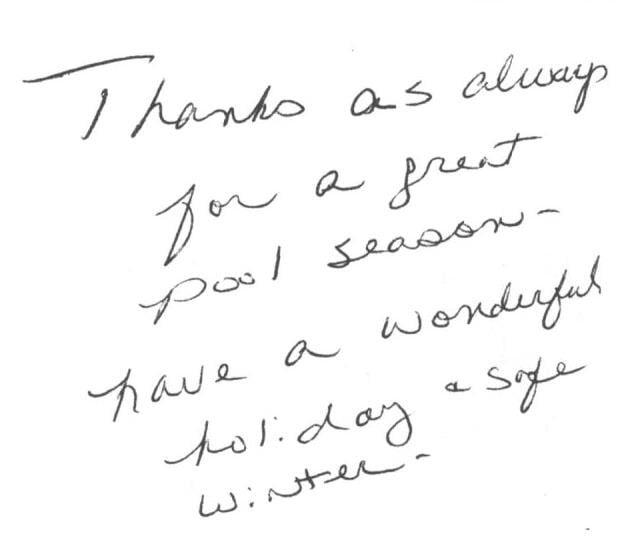 Thanks as always
for a great
pool season -
have a wonderful
holiday & safe
winter -